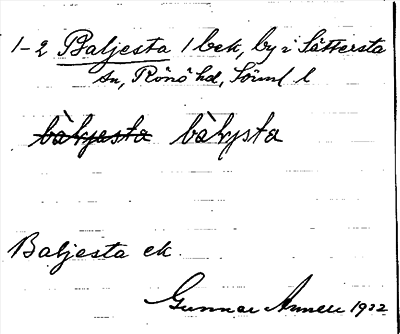 1-2 Baljesta 1 bek, by i Sättersta
sn, Rönö hd, Sörml l
bàljesta bàljsta
Baljesta ek.
Gunnar Anneu 1932